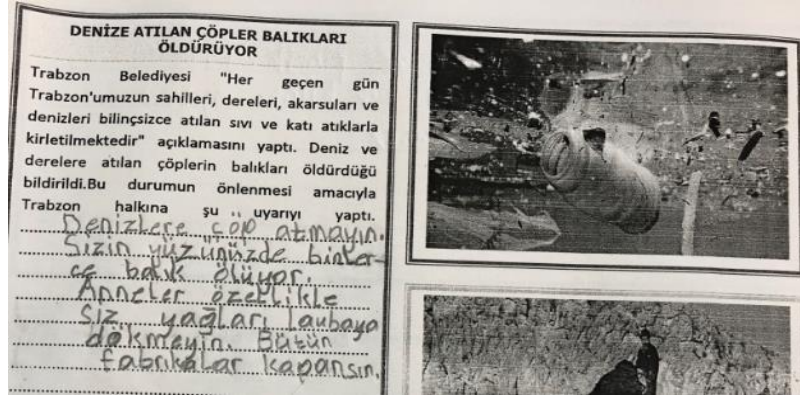 DENİZE ATILAN ÇÖPLER BALIKLARI
ÖLDÜRÜYOR
Trabzon Belediyesi "Her geçen gün
Trabzon'umuzun sahilleri, dereleri, akarsuları ve
denizleri bilinçsizce atılan sıvı ve katı atıklarla
kirletilmektedir" açıklamasını yaptı. Deniz ve
derelere atılan çöplerin balıkları öldürdüğü
bildirildi.Bu durumun önlenmesi amacıyla
Trabzon halkına şu uyarıyı yaptı.
Denizlere çöp atmayın.
Sizin yüzünüzde binler-
ce balık ölüyor.
Anneler özellikle
siz yağları lavbaya
dökmeyin. Bütün
fabrikalar kapansın.